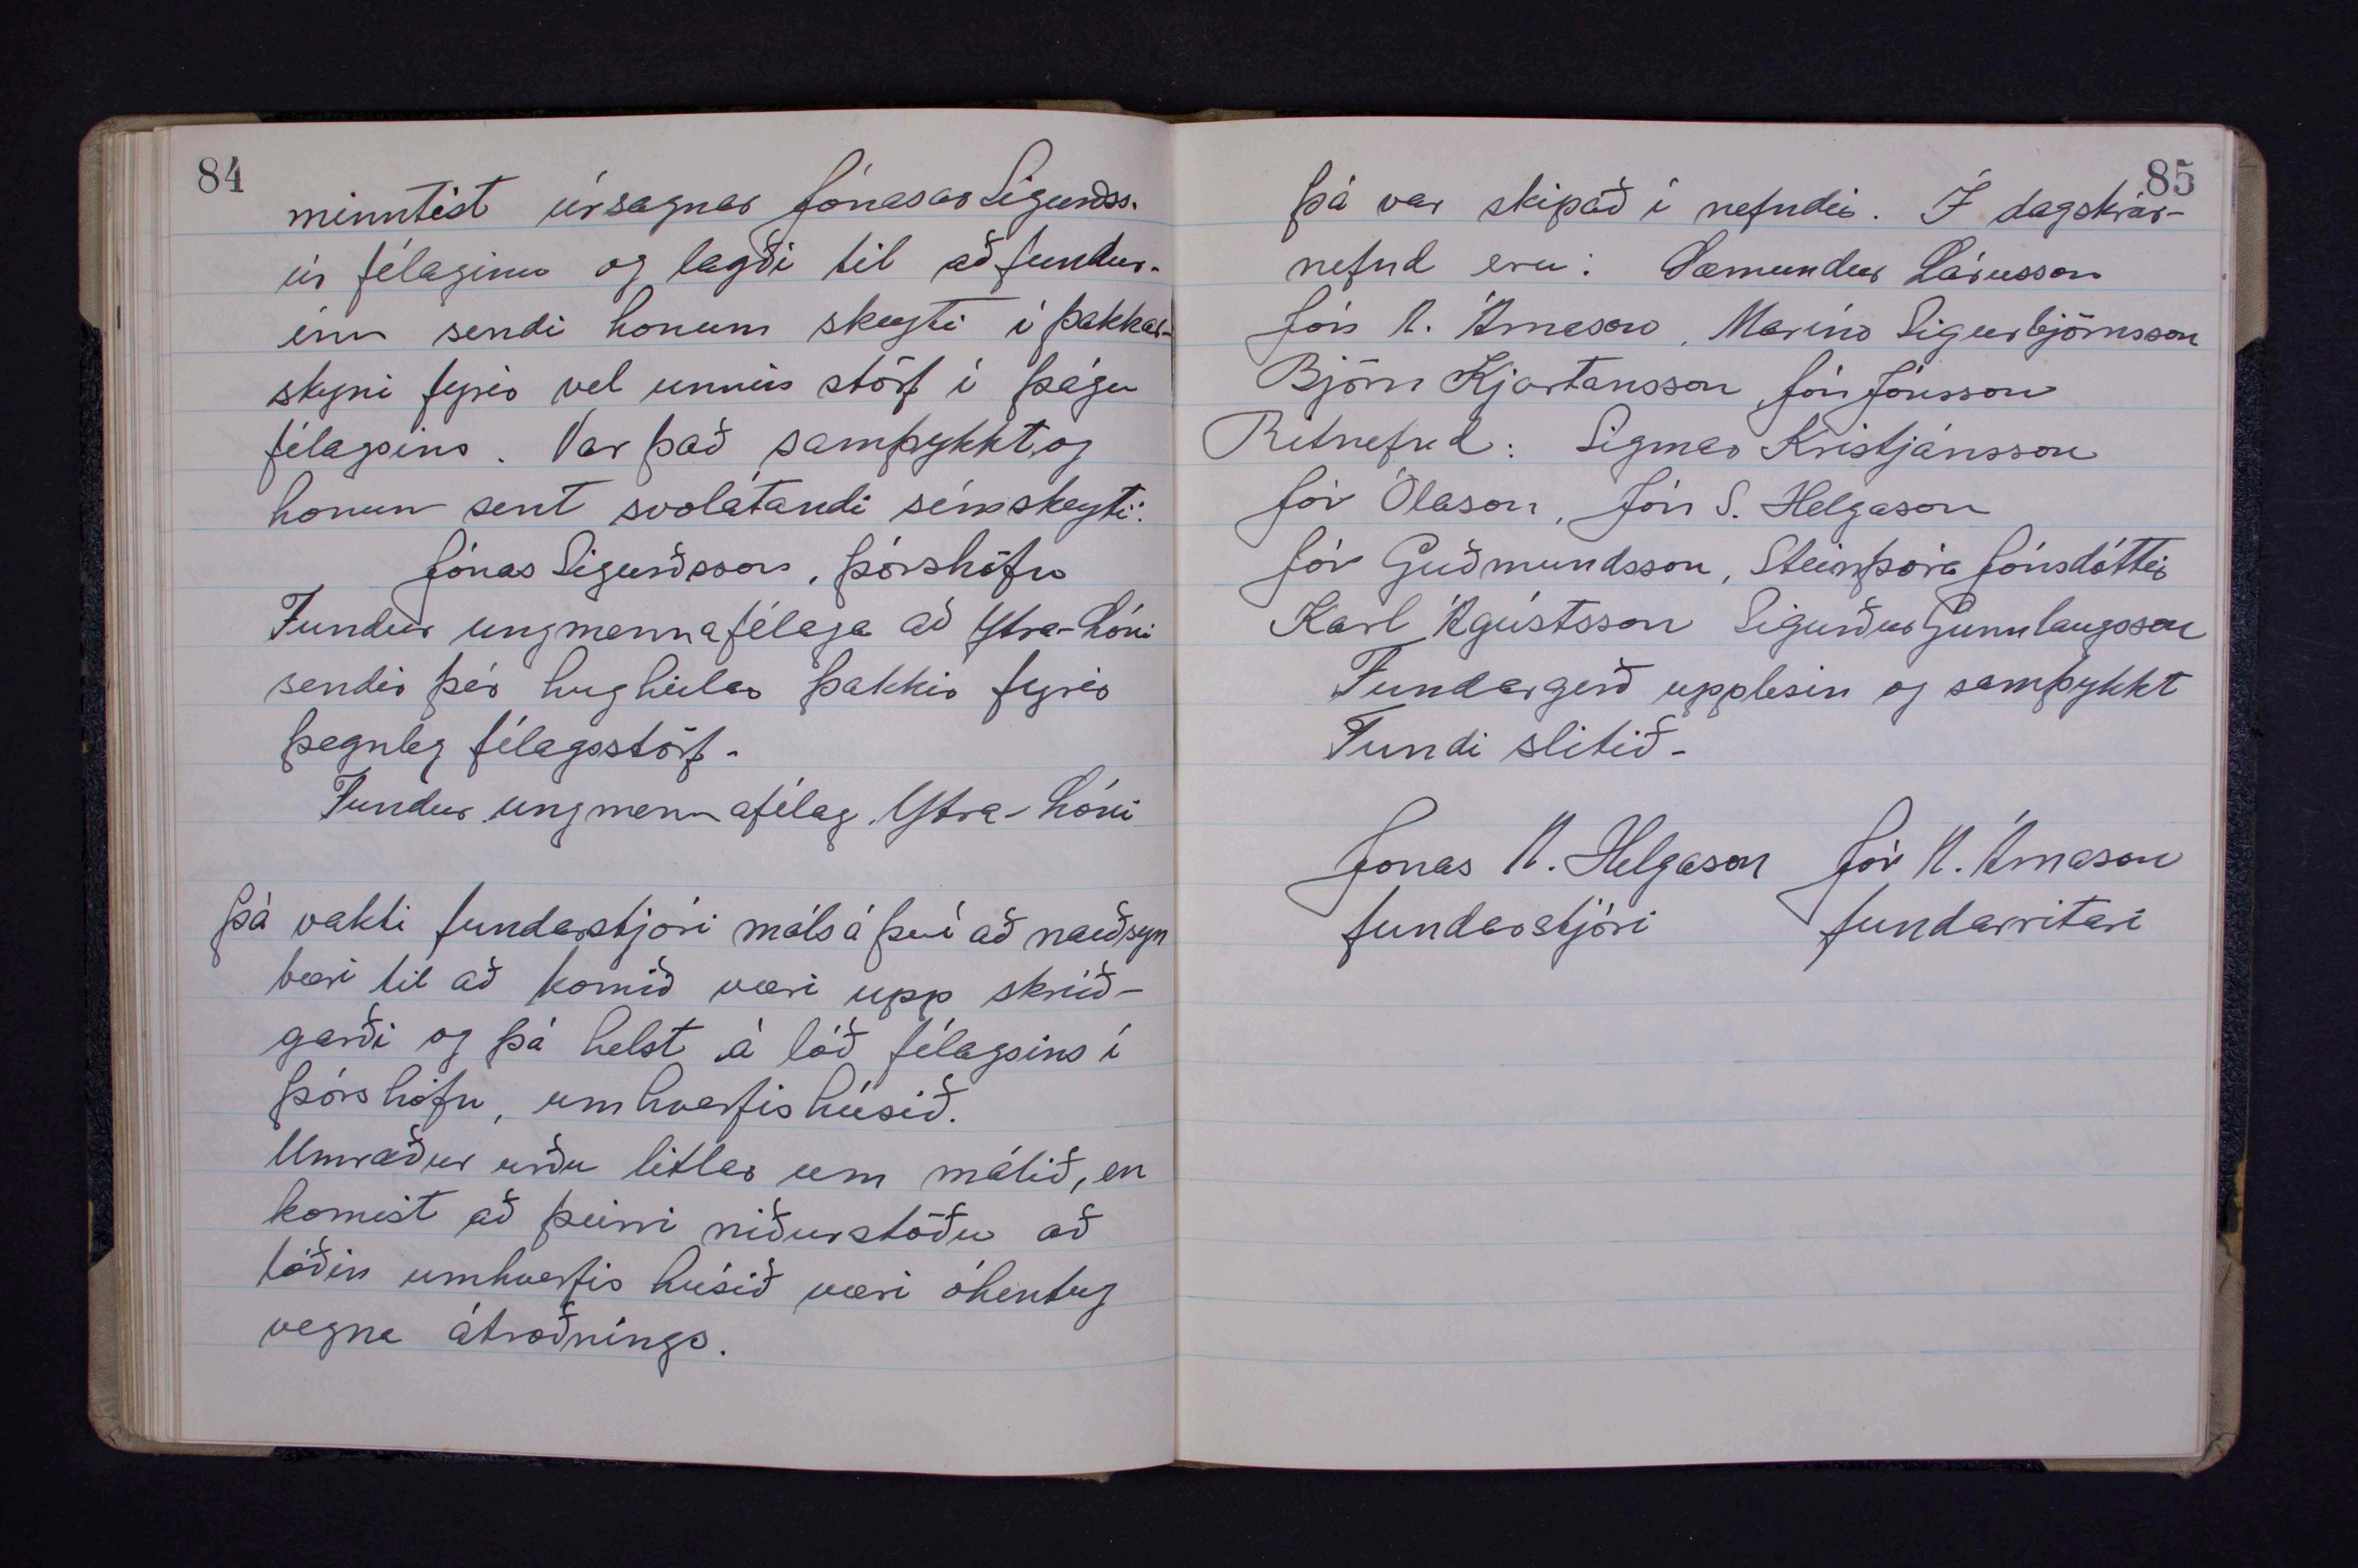 84
minntist úrsagnar Jónasar Sigurðss.
úr félaginu og lagði til að fundur-
inn sendi honum skeyti í þakkar-
skyni fyrir vel unnin störf í þágu
félagsins. Var það samþykkt og
honum sent svolátandi símskeyti:
Jónas Sigurðsson, Þórshöfn
Fundur ungmennafélaga að Ytra-Lóni
sendir þér hugheilar þakkir fyrir
þegnleg félagsstörf.
Fundur ungmennafélag Ytra-Lóni
Þá vakti fundarstjóri máls á því að nauðsyn
bæri til að komið væri upp skrúð-
garði og þá helst á lóð félagsins í
Þórshöfn, umhverfis húsið.
Umræður urðu litlar um málið, en
komist að þeirri niðurstöðu að
lóðin umhverfis húsið væri óhentug
vegna átroðnings.
85
Þá var skipað í nefndir. Í dagskrár-
nefnd eru: Sæmundur Lárusson
Jón A. Árnason, Marínó Sigurbjörnsson
Björn Kjartansson, Jón Jónsson
Ritnefnd: Sigmar Kristjánsson
Jón Ólason, Jón S. Helgason
Jón Guðmundsson, Steinþóra Jónsdóttir
Karl Ágústsson Sigurður Gunnlaugsson
Fundargerð upplesin og samþykkt
Fundi slitið-
Jonas A. Helgason Jón A. Árnason
fundarstjóri fundarritari